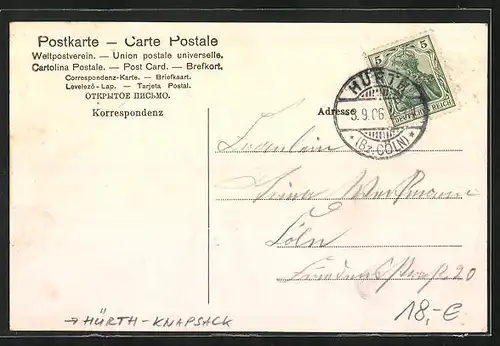 Postkarte — Carte Postale
Weltpostverein. — Union postale universelle.
Cartolina Postale. — Post Card. — Brefkort.
Correspondenz-Karte. — Briefkaart.
Levelező-Lap. — Tarjeta Postal.
ОТКРЫТОЕ ПИСЬМО.
Korrespondenz
Adresse
5 5
DEUTSCHES REICH
HÜRTH
9.06
*(Bz. CÖLN)*
Fräulein
Cöln
20
18,-€
→ HÜRTH-KNAPSACK